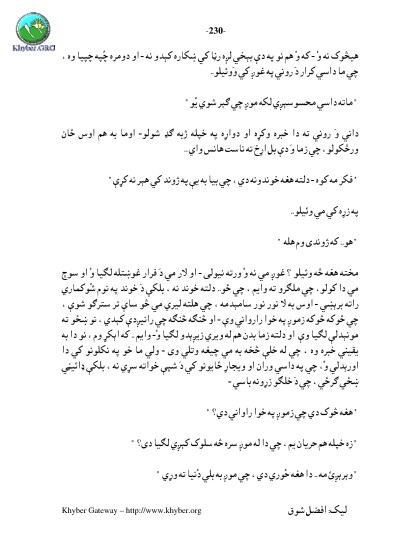 -230-
Khyber.ORG
هيڅوک نه وُ - که وُ هم نو په دې بېخي لږه رڼا کې ښکاره کېدو نه - او دومره چُپه چپيا وه ،
چې ما داسې کرار دَ رونې په غوږ کې ووئيلو..
"ماته داسې محسوسېږي لکه موږ چې ګېر شوي يُو"
دانې وَ رونې ته دا خبره وکړه او دواړه په خپله ژبه ګډ شولو- اوما به هم اوس ځان
ورڅکولو ، چې زما وَ دې بل اړخ ته ناست هانس واي..
"فکر مه کوه - دلته هغه خوند ونه دي ، چې بيا به يې په ژوند کې هېر نه کړې"
په زړه کې مې وئيلو..
"هو.. که ژوندی وم هله"
مخته هغه څه وئيلو ؟ غوږ مې نه وُ ورته نيولی - او لار مې دَ فرار غوښتله لګيا وُ او سوچ
مې دا کولو ، چې ملګرو ته وايم ، چې خو.. دلته خوند نه ، بلکې دَ خوند په نوم شوکماري
راته برېښي - اوس به لا نور نور سامبدمه ، چې هلته لېرې مې څو ساي تر سترګو شوې ،
چې څوکه څوکه زموږ په خوا را رواني وې - او څنګه څنګه چې رانېږدې کېدې ، نو ښځو ته
مونبدلې لګيا وې او دلته زما بدن هم له ويرې زېږېدو لګيا وُ- وايم.. که ابکړ وم ، نو دا به
يقيني خبره وه ، چې له خلې څخه به مې چيغه وتلې وی - ولې ما خو په نکلونو کې دا
اورېدلي وُ، چې په داسې وران او ويجاړ ځايونو کې دَ شپې خوا ته سړي نه ، بلکې دائينې
ښځې ګرځي ، چې دَ خلګو زړونه باسي-
"هغه څوک دي چې زموږ په خوا رارواني دي؟"
"زه خپله هم حريان يم ، چې دا له موږ سره څه سلوک کېږي لګيا دی؟"
"وېرېږئ مه.. دا هغه حُورې دي ، چې موږ به بلې دُنيا ته وړي"
Khyber Gateway – http://www.khyber.org
ليک: افضل شوق